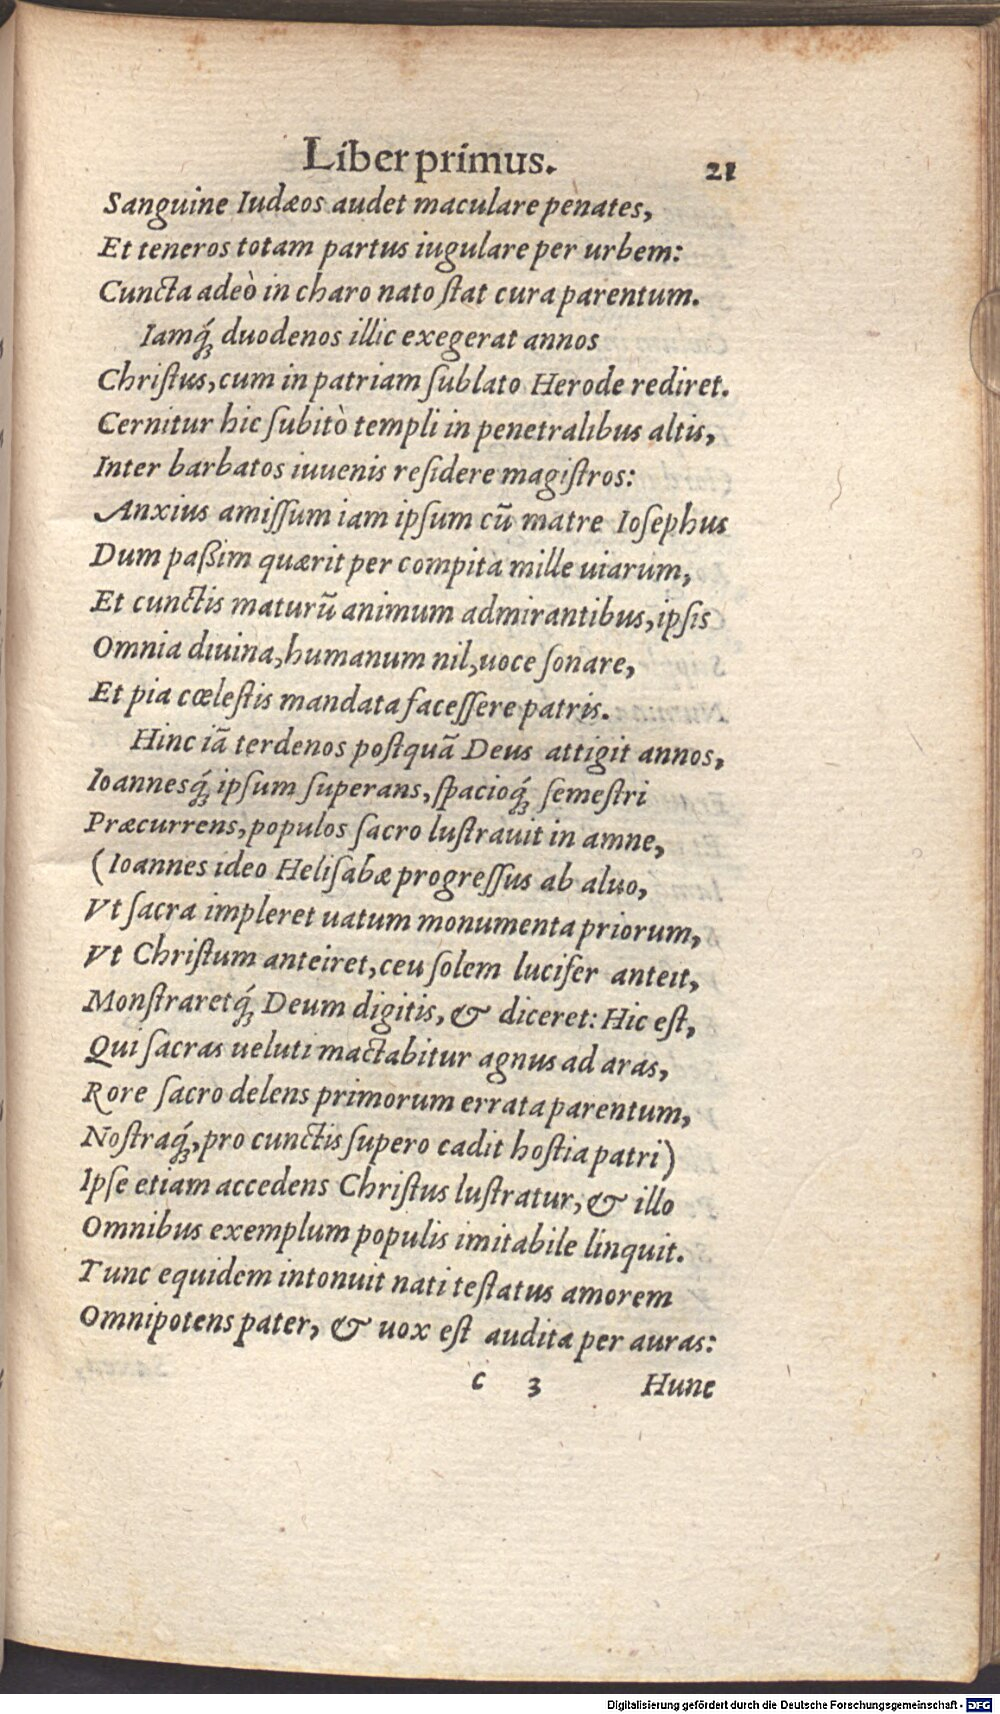 Liber primus. 21
Sanguine Iudæos audet maculare penates,
Et teneros totam partus iugulare per urbem:
Cuncta adeò in charo nato ſtat cura parentum.
Iamq́ꝫ duodenos illic exegerat annos
Chriſtus, cum in patriam ſublato Herode rediret.
Cernitur hic ſubitò templi in penetralibus altis,
Inter barbatos iuuenis reſidere magiſtros:
Anxius amiſſum iam ipſum cū matre Ioſephus
Dum paßim quærit per compita mille uiarum,
Et cunctis maturū animum admirantibus, ipſis
Omnia diuina, humanum nil, uoce ſonare,
Et pia cœleſtis mandata faceſſere patris.
Hinc iā terdenos poſtquā Deus attigit annos,
Ioannesq́ꝫ ipſum ſuperans, ſpacioq́ꝫ ſemeſtri
Præcurrens, populos ſacro luſtrauit in amne,
(Ioannes ideo Heliſabæ progreſſus ab aluo,
Vt ſacra impleret uatum monumenta priorum,
Vt Chriſtum anteiret, ceu ſolem lucifer anteit,
Monſtraretq́ꝫ Deum digitis, & diceret: Hic eſt,
Qui ſacras ueluti mactabitur agnus ad aras,
Rore ſacro delens primorum errata parentum,
Noſtraq́ꝫ, pro cunctis ſupero cadit hoſtia patri)
Ipſe etiam accedens Chriſtus luſtratur, & illo
Omnibus exemplum populis imitabile linquit.
Tunc equidem intonuit nati teſtatus amorem
Omnipotens pater, & uox eſt audita per auras:
c 3 Hunc
Digitalisierung gefördert durch die Deutsche Forschungsgemeinschaft - DFG